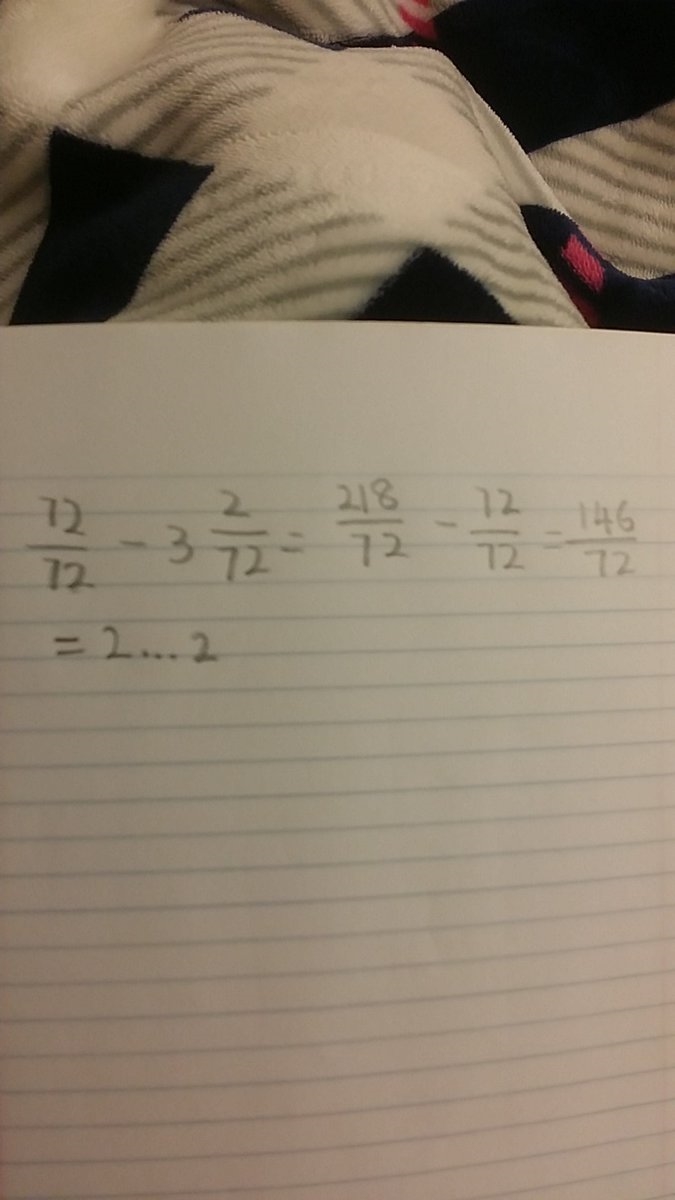 72/72 - 3 2/72 = 218/72 - 72/72 = 146/72
= 2...2